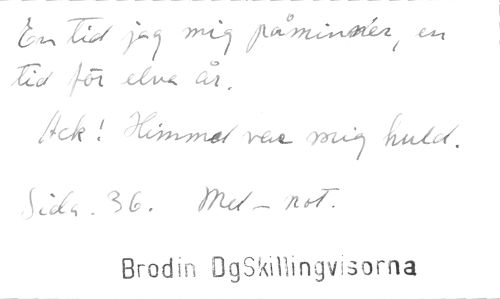 En tid jag mig påminner, en
tid för elva år.
Ack! Himmel var mig huld.
Sida. 36. Mel - not.
Brodin DgSkillingvisorna